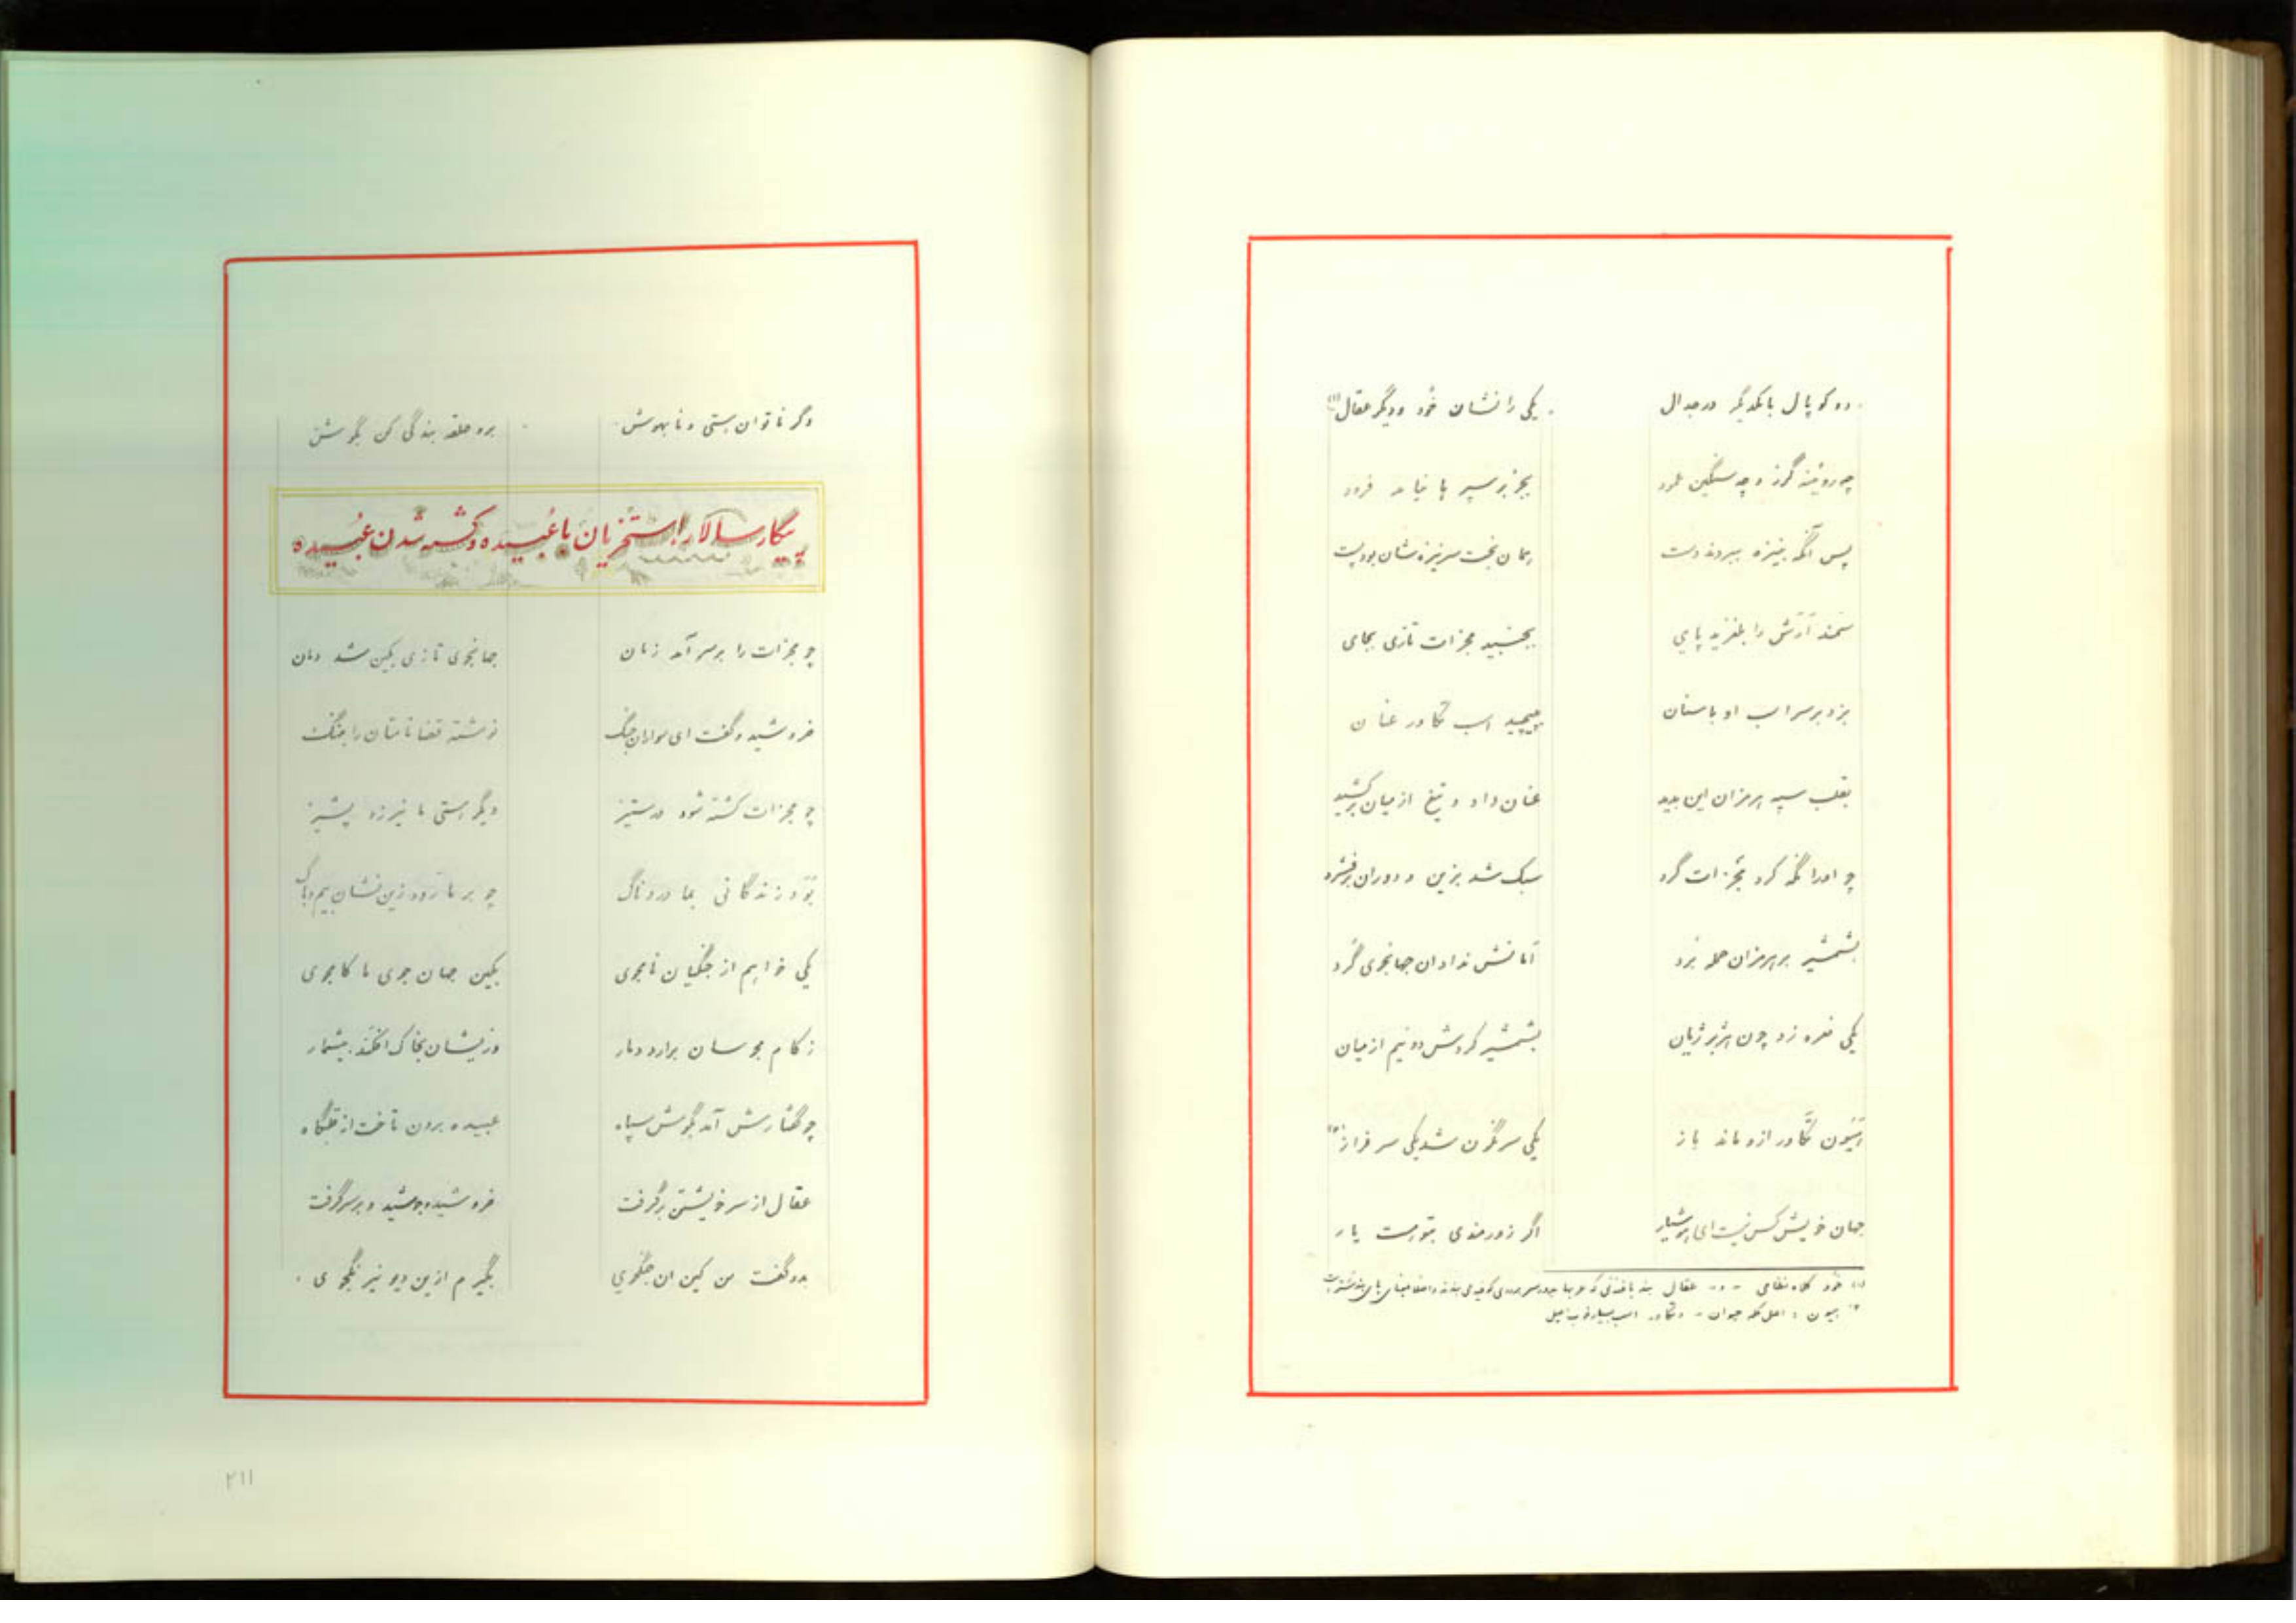 دو کوپال با یکدیگر در جدال یکی را نشان خُود و دیگر عقال (۱)
چه روئینه گرز و چه سنگین عمود بجز بر سپر ها نیامد فرود
پس آنگه بنیزه ببردند دست همان نخست سر نیزه شان بود پست
سمند آرش را بلغزید پای بجنبید مجزات تازی بجای
بزد بر سر اسب او با سنان بپیچید اسب تکاور عنان
بقلب سپه هرمزان این بدید عنان داد و تیغ از میان برکشید
چو او را نگه کرد مجزات گرد سبک شد بزین و دو ران بر فشرد
بشمشیر بر هرمزان حمله بُرد امانش نداد آن جهانجوی گُرد
یکی نعره زد چون هژبر ژیان بشمشیر کردش دو نیم از میان
هَیون تکاور ازو ماند باز یکی سرنگون شد یکی سرفراز (۲)
جهان خویش کس نیست ای هوشیار اگر زورمندی بتو هست یار
(۱) خُود کلاه نظامی - و - عقال
(۲) هیون : و تکاور اسب
وگر ناتوان بستی و نابهوش برو حلقه بندگی کن بگوش
پیکار سالار استخریان با عُبیده و کشته شدن عُبیده
چو مجزات را بر سر آمد زمان جهانجوی تازی بکین شد دمان
خروشید و گفت ای سواران جنگ نوشته قضا نامتان را بننگ
چو مجزات کشته شود در ستیز دیگر هستی ما نیرزد پشیز
بُوَد زندگانی بما دردناک چو بر ما رود زین نشان بیم و باک
یکی خواهم از جنگیان نامجوی بکین جهان جوی ما کامجوی
ز کام مجوسان برآرد دمار وزیشان بخاک افکند بیشمار
چو گفتارش آمد بگوش سپاه عبیده برون تاخت از قلبگاه
عقال از سر خویشتن برگرفت خروشید و جوشید و بر سر گرفت
بدو گفت من کین آن جنگجوی بگیرم ازین دیو نیرنگجوی
۲۱۱